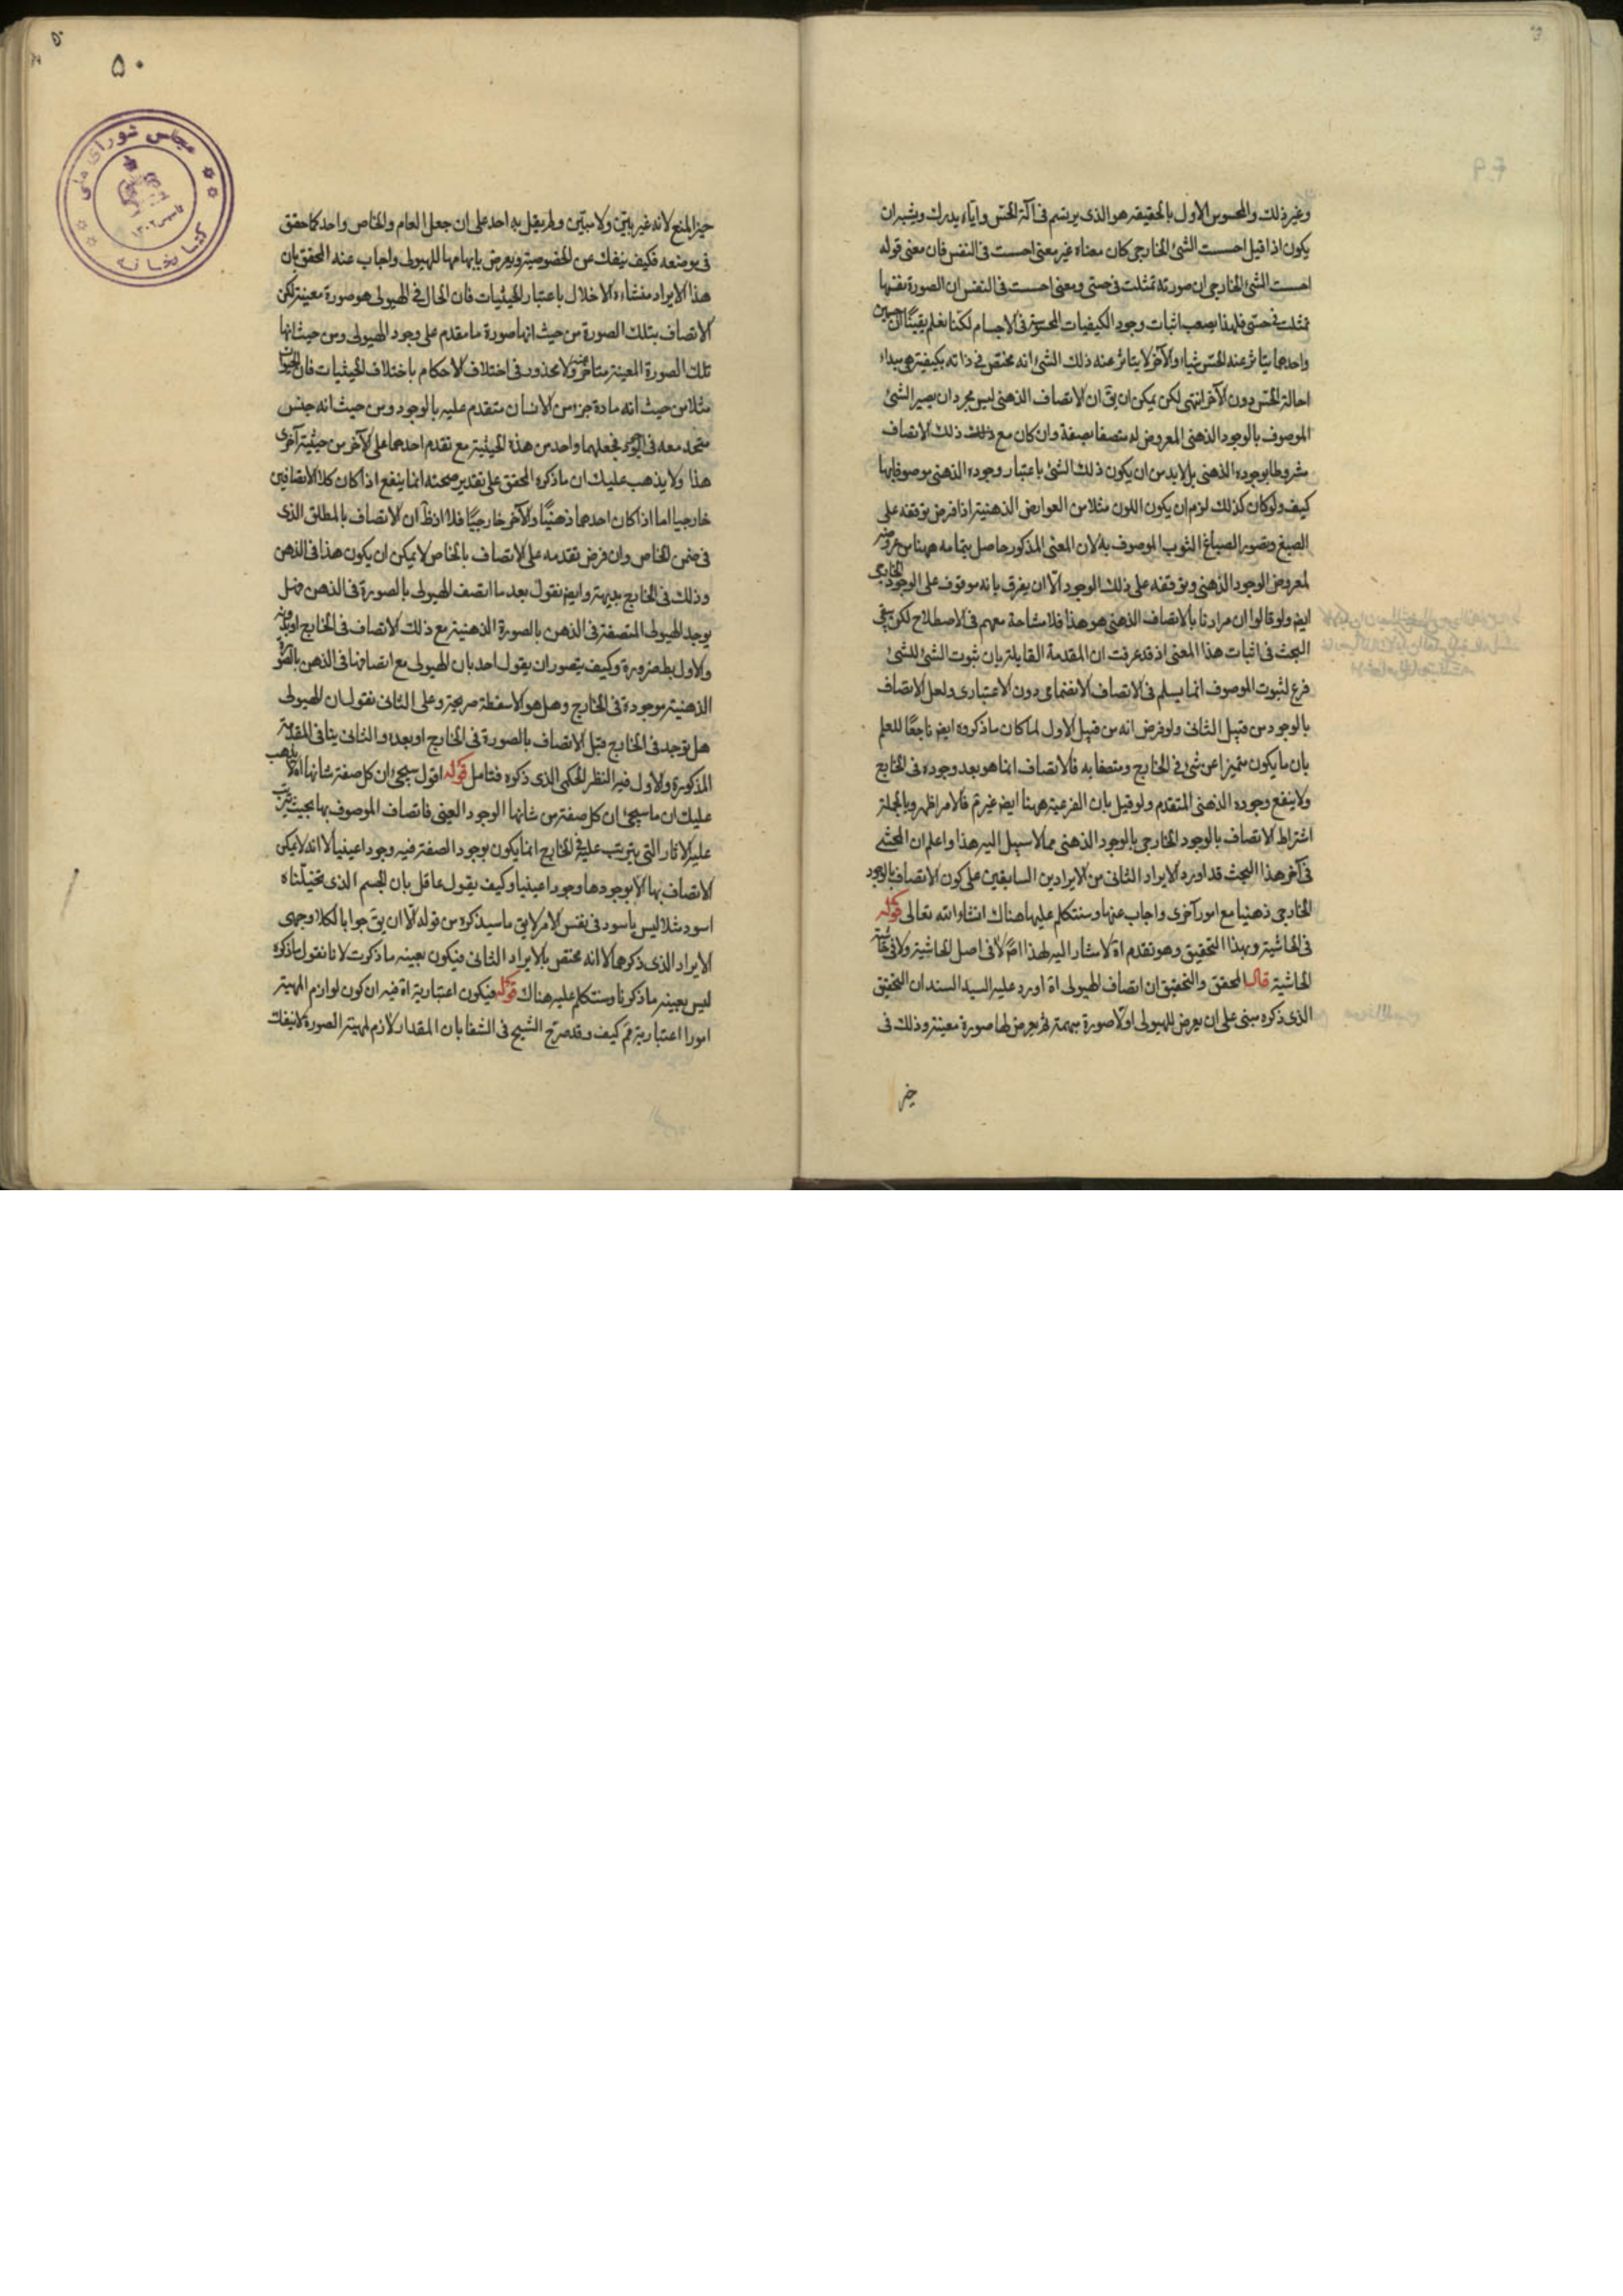 وغير ذلك والمحسوس الاول بالحقيقة هو الذى يرتسم فى آلة الحس واياه يدرك ويشبه ان
يكون اذا قيل احست الشئ الخارجى كان معناه غير معنى احست فى النفس فان معنى قوله
احست الشئ الخارجى ان صورته تمثلت فى حسى ومعنى احست فى النفس ان الصورة نفسها
تمثلت فى حسى فلهذا يصعب اثبات وجود الكيفيات المحسوسة فى الاجسام لكنا نعلم يقينًا ان جسمين
واحدهما يتاثر عنه الحس شيا والآخر لا يتاثر عنه ذلك الشئ انه مختص فى ذاته بكيفية هى مبداء
احالة الحس دون الآخر انتهى لكن يمكن ان يق ان الاتصاف الذهنى ليس مجرد ان يصير الشئ
الموصوف بالوجود الذهنى المعروض له متصفا بصفة وان كان مع ذلك ذلك الاتصاف
مشروطا بوجوده الذهنى بل لا بد من ان يكون ذلك الشئ باعتبار وجوده الذهنى موصوفا بها
كيف ولو كان كذلك لزم ان يكون اللون مثلا من العوارض الذهنية اذا فرض توقفه على
الصبغ وتصور الصباغ الثوب الموصوف به لان المعنى المذكور حاصل بتمامه ههنا من عروضه
لمعروض الوجود الذهنى وتوقفه على ذلك الوجود الا ان يفرق بانه موقوف على الوجود الخارجى
ايض ولو قالوا ان مرادنا بالاتصاف الذهنى هو هذا فلا مشاحة معهم فى الاصطلاح لكن يبقى
البحث فى اثبات هذا المعنى اذ قد عرفت ان المقدمة القايلة بان ثبوت الشئ للشئ
فرع لثبوت الموصوف انما يسلم فى الاتصاف الانضمامى دون الاعتبارى ولعل الاتصاف
بالوجود من قبيل الثانى ولو فرض انه من قبيل الاول لما كان ما ذكروه ايض ناجعًا للعلم
بان ما يكون متميزا عن شئ فى الخارج ومتصفا به فالاتصاف انما هو بعد وجوده فى الخارج
ولا ينفع وجوده الذهنى المتقدم ولو قيل بان الفرعية ههنا ايض غير تم فالامر اظهر وبالجملة
اشتراط الاتصاف بالوجود الخارجى بالوجود الذهنى مما لا سبيل اليه هذا واعلم ان المحشى
فى آخر هذا المبحث قد اورد الايراد الثانى من الايرادين السابقين على كون الاتصاف بالوجود
الخارجى ذهنيا مع امور آخرى واجاب عنها وسنتكلم عليها هناك انشاء الله تعالى قوله
فى الحاشية وبهذا التحقيق وهو تقدم اه لا مشار اليه لهذا لا فى اصل الحاشية ولا فى حاشية
الحاشية قال المحقق والتحقيق ان اتصاف الهيولى اه اورد عليه السيد السند ان التحقيق
الذى ذكره مبنى على ان يعرض للهيولى اولًا صورة مبهمة ثم يعرض لها صورة معينة وذلك فى
حيز
۵۰
مجلس شورای ملی
کتابخانه
حيز المنع لانه غير بيّن ولا مبيّن ولم يقل به احد على ان جعل العام والخاص واحد كما حقق
فى موضعه فكيف ينفك عن الخصوصية ويعرض بابهامها للهيولى واجاب عنه المحقق بان
هذا الايراد منشاءه الاخلال باعتبار الحيثيات فان الحال فى الهيولى هو صورة معينة لكن
الاتصاف بتلك الصورة من حيث انها صورة ما مقدم على وجود الهيولى ومن حيث انها
تلك الصورة المعينة متاخر عنه ولا محذور فى اختلاف الاحكام باختلاف الحيثيات فان الحيوان
مثلا من حيث انه مادة جزء من الانسان متقدم عليه بالوجود ومن حيث انه جنس
متحد معه فى الوجود فجعلهما واحد من هذه الحيثية مع تقدم احدهما على الآخر من حيثية آخرى
هذا ولا يذهب عليك ان ما ذكره المحقق على تقدير صحته انما ينفع اذا كان كلا الاتصافين
خارجيا اما اذا كان احدهما ذهنيًا والآخر خارجيًا فلا اذ ظ ان الاتصاف بالمطلق الذى
فى ضمن الخاص وان فرض تقدمه على الاتصاف بالخاص لا يمكن ان يكون هذا فى الذهن
وذلك فى الخارج بديهة وايض نقول بعد ما اتصف الهيولى بالصورة فى الذهن هل
يوجد الهيولى المتصفة فى الذهن بالصورة الذهنية مع ذلك الاتصاف فى الخارج او بدونه
والاول بط ضرورة وكيف يتصور ان يقول احد بان الهيولى مع اتصافها فى الذهن بالصورة
الذهنية موجودة فى الخارج وهل هو الا سفطة صريحة وعلى الثانى نقول ان الهيولى
هل توجد فى الخارج قبل الاتصاف بالصورة فى الخارج او بعده والثانى ينافى المقدمة
المذكورة والاول فيه النظر الحكمى الذى ذكره فتامل قوله اقول سيجئ ان كل صفة شانها اه لا يذهب
عليك ان ما سيجئ ان كل صفة من شانها الوجود العينى فاتصاف الموصوف بها بحيث يترتب
عليه الاثار التى يترتب عليه فى الخارج انما يكون بوجود الصفة فيه وجودا عينيا لا انه لا يمكن
الاتصاف بها الا بوجودها وجودا عينيا وكيف يقول عاقل بان الجسم الذى تخيلناه
اسود مثلا ليس باسود فى نفس الامر لا يق ما سيذكره من قوله الا ان يق جوابا لكلا وجهى
الايراد الذى ذكرهما لا انه مختص بالايراد الثانى فيكون بعينه ما ذكرت لانا نقول ما ذكره
ليس بعينه ما ذكرنا وسنتكلم عليه هناك قوله فيكون اعتبارية اه فيه ان كون لوازم المهية
امورا اعتبارية مم كيف وقد صرح الشيخ فى الشفا بان المقدار لازم لمهية الصورة لا ينفك